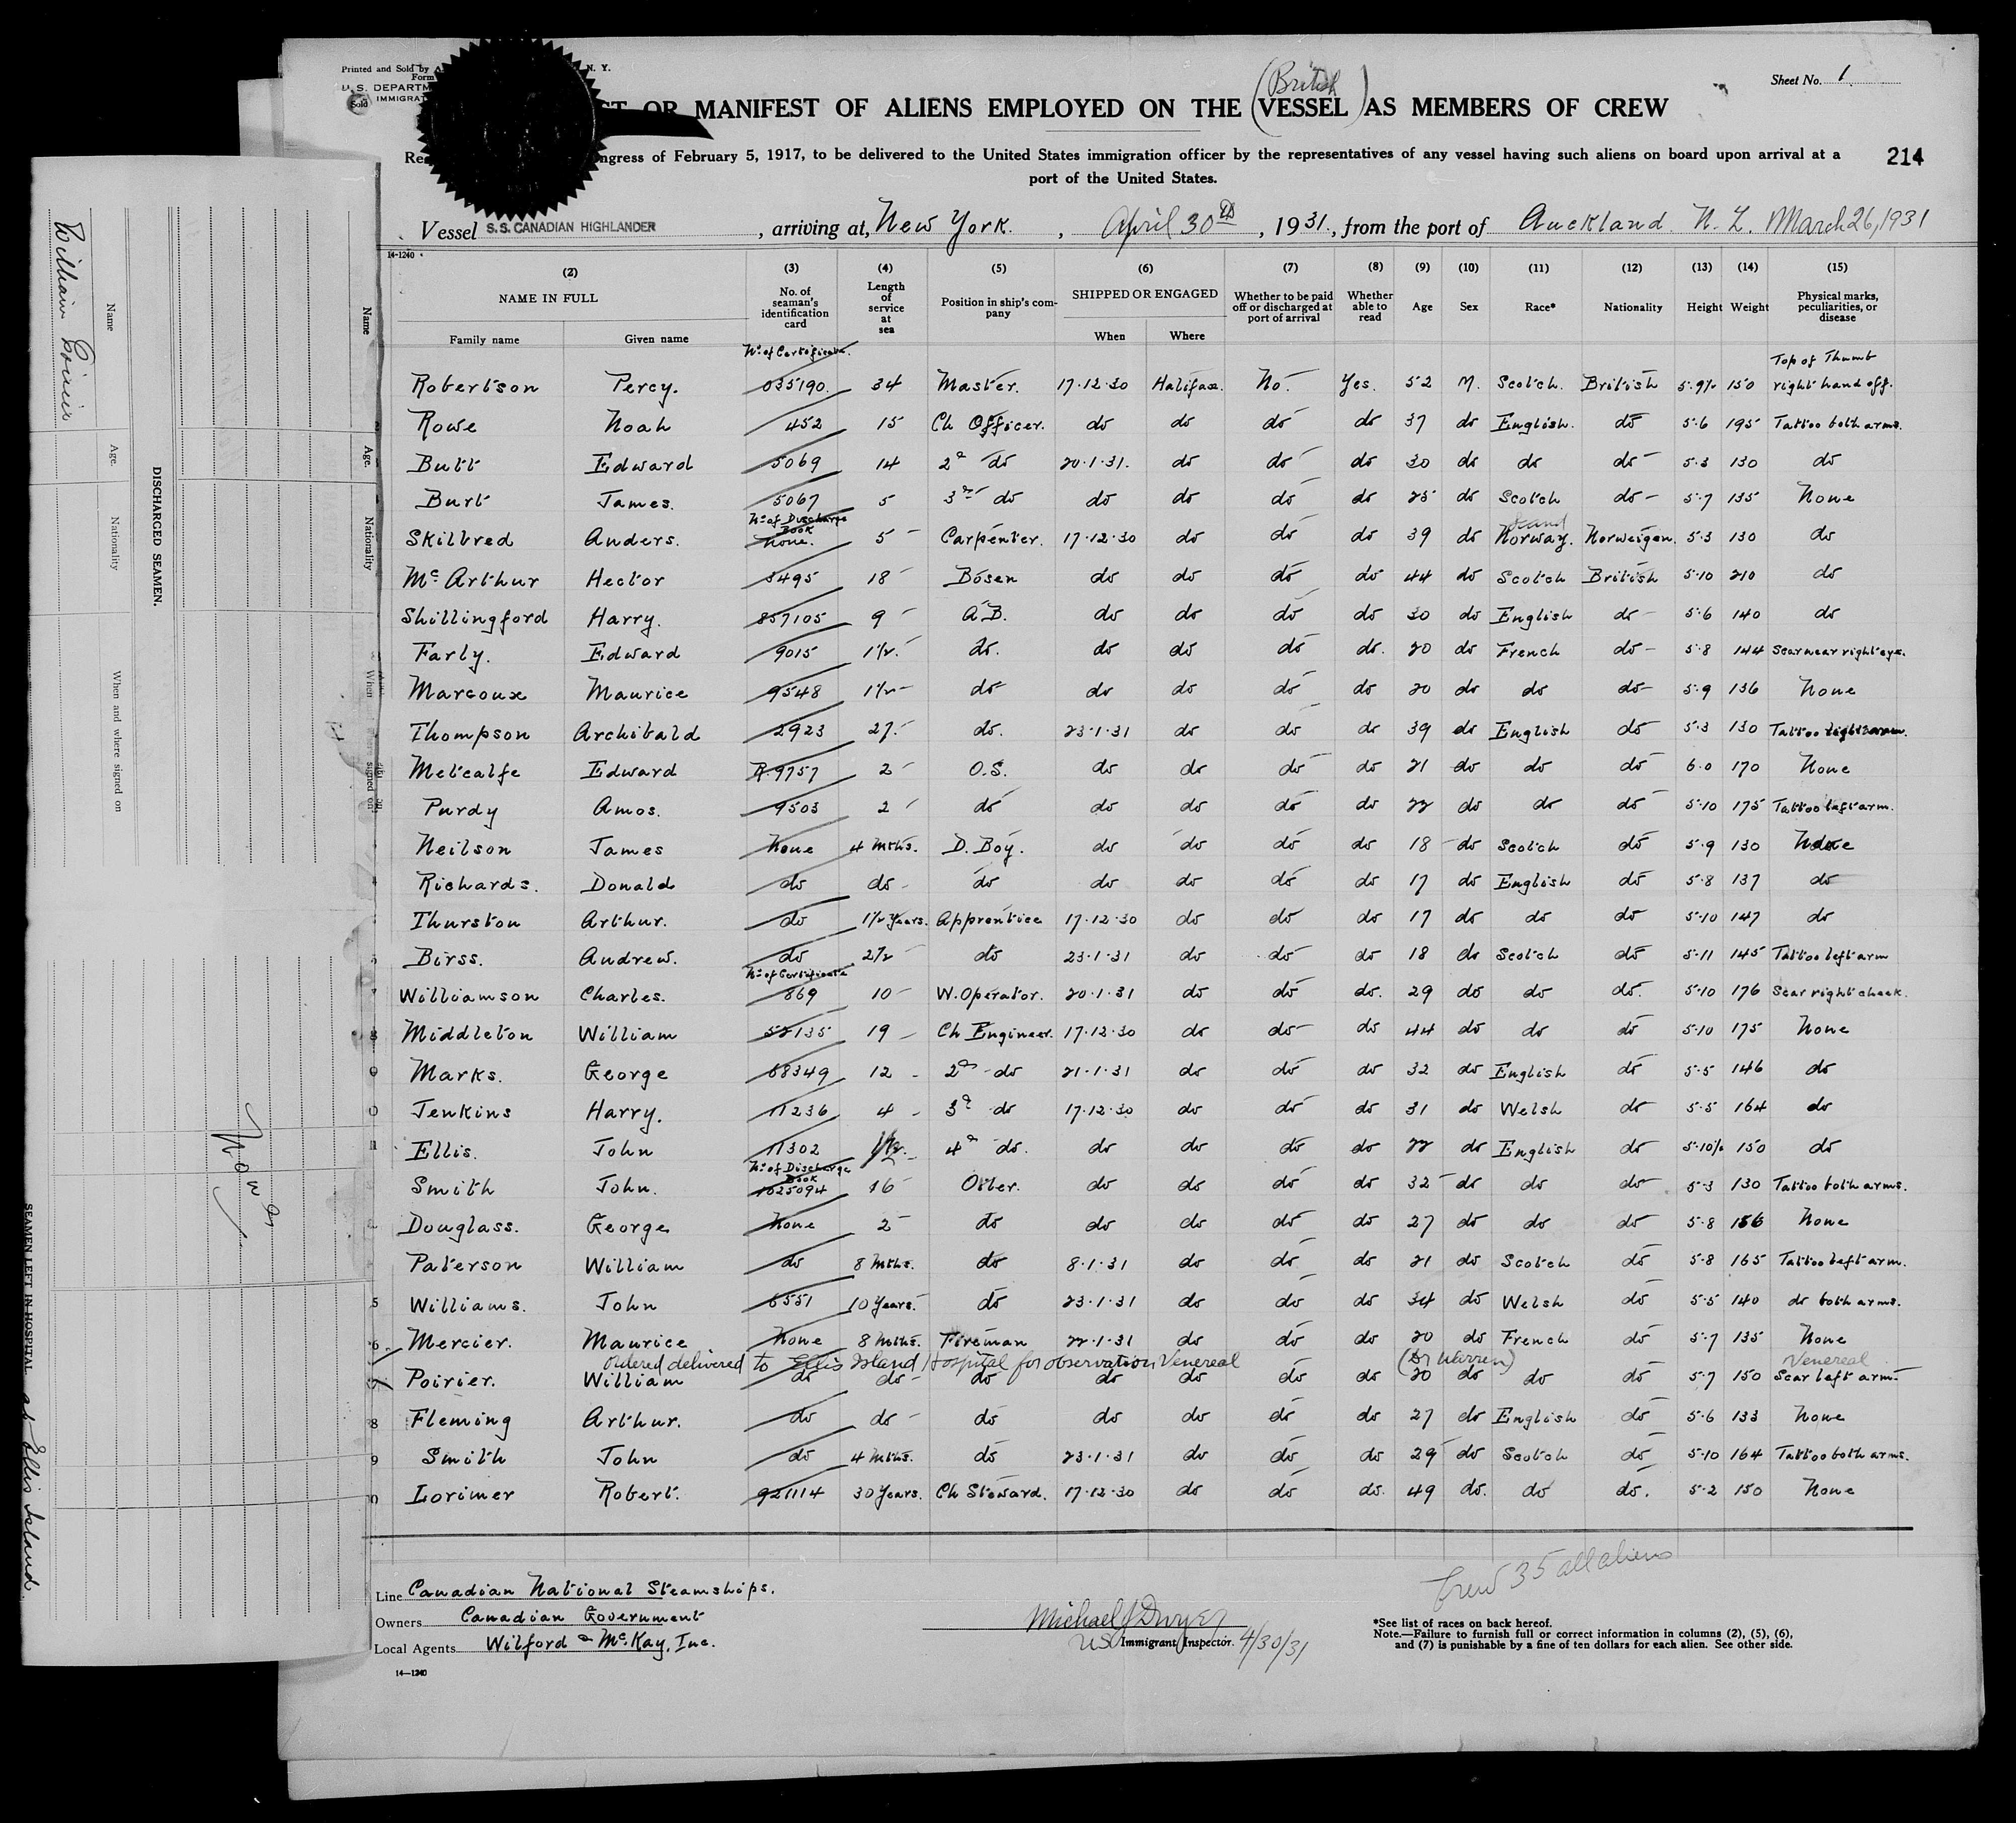 Printed and Sold by
N. Y.
Form
U. S. DEPARTM
Sold
IMMIGRAT
Sheet No. 1
(British)
ST OR MANIFEST OF ALIENS EMPLOYED ON THE VESSEL AS MEMBERS OF CREW
ngress of February 5, 1917, to be delivered to the United States immigration officer by the representatives of any vessel having such aliens on board upon arrival at a
port of the United States.
214
Vessel S.S. CANADIAN HIGHLANDER, arriving at, New York., April 30th, 1931., from the port of Auckland. N. Z. March 26, 1931
14-1240
(2) (3) (4) (5) (6) (7) (8) (9) (10) (11) (12) (13) (14) (15)
NAME IN FULL No. of seaman's identification card Length of service at sea Position in ship's company SHIPPED OR ENGAGED Whether to be paid off or discharged at port of arrival Whether able to read Age Sex Race* Nationality Height Weight Physical marks, peculiarities, or disease
Family name Given name When Where
No. of Certificate. Top of Thumb
Robertson Percy. 035190. 34 Master. 17.12.30 Halifax. No. Yes. 52 M. Scotch. British 5.9½ 150 right hand off.
Rowe Noah 452 15 Ch Officer. do do do do 37 do English. do 5.6 195 Tattoo both arms.
Butt Edward 5069 14 2d do 20.1.31. do do do 30 do do do 5.3 130 do
Burt James. 5067 5 3rd do do do do do 25 do Scotch do 5.7 135 None
No. of Discharge Book Scand
Skilbred Anders. None. 5 Carpenter. 17.12.30 do do do 39 do Norway. Norweigen. 5.3 130 do
McArthur Hector 5495 18 Bosen do do do do 44 do Scotch British 5.10 210 do
Shillingford Harry. 857105 9 A.B. do do do do 30 do English do 5.6 140 do
Farly. Edward 9015 1½. do. do do do do. 20 do French do 5.8 144 Scar near right eye.
Marcoux Maurice 9548 1½ do do do do do 20 do do do 5.9 136 None
Thompson Archibald 2923 27. do. 23.1.31 do do do 39 do English do 5.3 130 Tattoo right arm.
Metcalfe Edward R.9757 2 O.S. do do do do 21 do do do 6.0 170 None
Purdy Amos. 9503 2 do do do do do 22 do do do 5.10 175 Tattoo left arm.
Neilson James None 4 Mths. D. Boy. do do do do 18 do Scotch do 5.9 130 None
Richards. Donald do do do do do do do 17 do English do 5.8 137 do
Thurston Arthur. do 1½ Years. Apprentice 17.12.30 do do do 17 do do do 5.10 147 do
Birss. Andrew. do 2½ do 23.1.31 do do do 18 do Scotch do 5.11 145 Tattoo left arm
No. of Certificate
Williamson Charles. 869 10 W. Operator. 20.1.31 do do do. 29 do do do. 5.10 176 Scar right cheek.
Middleton William 52135 19 Ch Engineer. 17.12.30 do do do 44 do do do 5.10 175 None
Marks. George 68349 12 2d do 21.1.31 do do do 32 do English do 5.5 146 do
Jenkins Harry. 11236 4 3d do 17.12.30 do do do 31 do Welsh do 5.5 164 do
Ellis. John 11302 4d do. do do do do 22 do English do 5.10½ 150 do
No. of Discharge Book
Smith John. 1025094 16 Oiler. do do do do 32 do do do 5.3 130 Tattoo both arms.
Douglass. George None 2 do do do do do 27 do do do 5.8 156 None
Paterson William do 8 Mths. do 8.1.31 do do do 21 do Scotch do 5.8 165 Tattoo left arm.
Williams. John 6551 10 Years. do 23.1.31 do do do 34 do Welsh do 5.5 140 do both arms.
Mercier. Maurice None 8 Mths. Fireman 22.1.31 do do do 20 do French do 5.7 135 None
Ordered delivered to Ellis Island Hospital for observation Venereal (Dr Warren) Venereal
Poirier. William do do do do do do do 20 do do do 5.7 150 Scar left arm.
Fleming Arthur. do do do do do do do 27 do English do 5.6 133 None
Smith John do 4 Mths. do 23.1.31 do do do 29 do Scotch do 5.10 164 Tattoo both arms.
Lorimer Robert. 921114 30 Years. Ch Steward. 17.12.30 do do do. 49 do. do do. 5.2 150 None
Crew 35 all aliens
Line Canadian National Steamships.
Owners Canadian Government
Local Agents Wilford & McKay, Inc.
Michael J Dwyer
US Immigrant Inspector. 4/30/31
*See list of races on back hereof.
Note.—Failure to furnish full or correct information in columns (2), (5), (6),
and (7) is punishable by a fine of ten dollars for each alien. See other side.
14—1240
DISCHARGED SEAMEN.
Name Age. Nationality When and where signed on
Name Age. Nationality When signed on
William Poirier
None
SEAMEN LEFT IN HOSPITAL at Ellis Island.